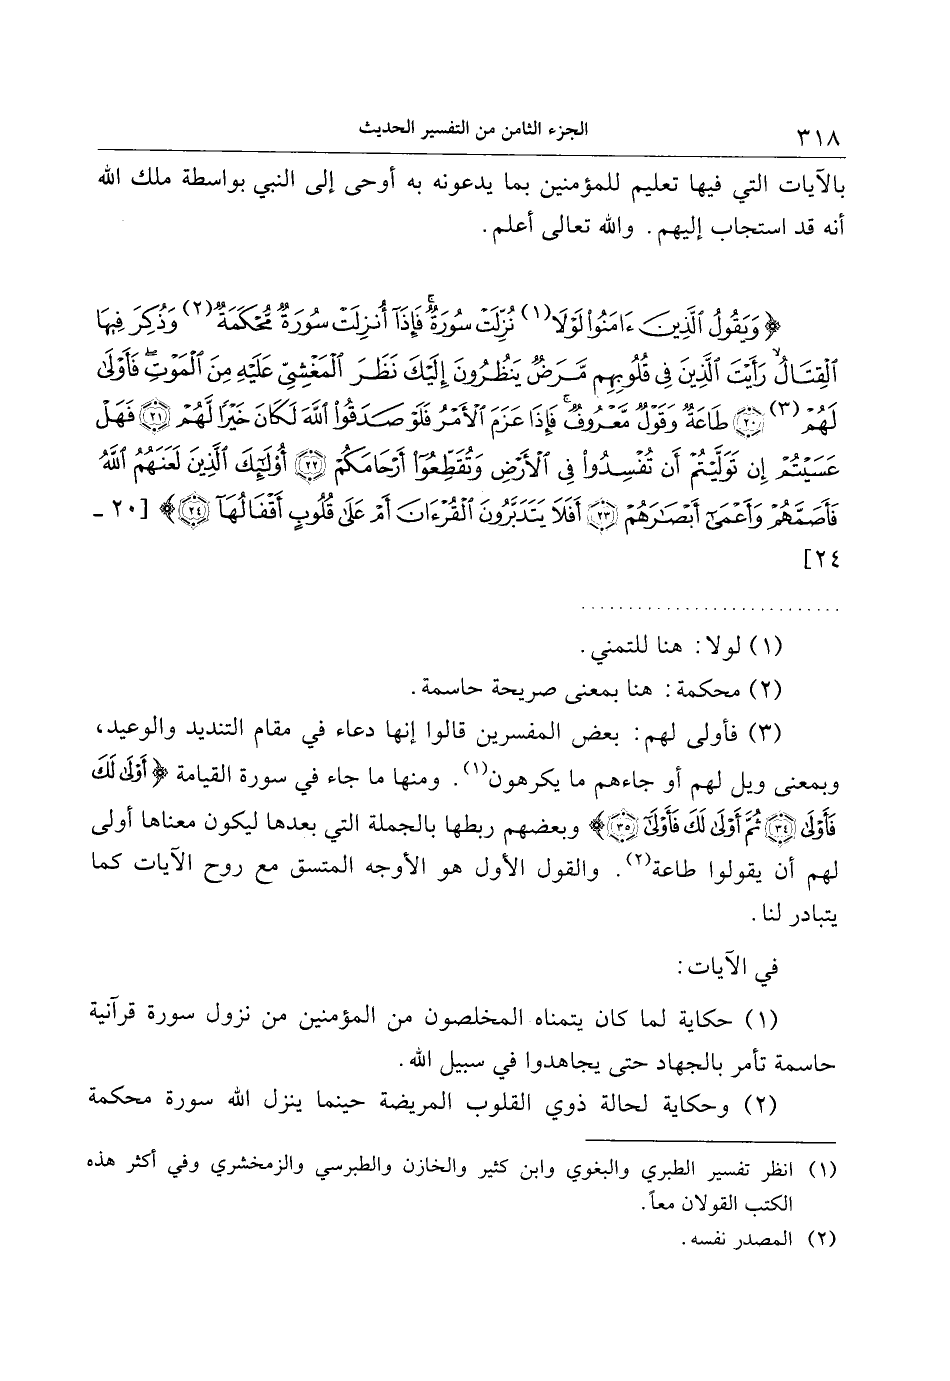 ٣١٨ الجزء الثامن من التفسير الحديث
بالآيات التي فيها تعليم للمؤمنين بما يدعونه به أوحى إلى النبي بواسطة ملك الله
أنه قد استجاب إليهم. والله تعالى أعلم.
﴿وَيَقُولُ ٱلَّذِينَ ءَامَنُوا۟ لَوْلَا(١) نُزِّلَتْ سُورَةٌ ۖ فَإِذَآ أُنزِلَتْ سُورَةٌ مُّحْكَمَةٌ(٢) وَذُكِرَ فِيهَا
ٱلْقِتَالُ ۙ رَأَيْتَ ٱلَّذِينَ فِى قُلُوبِهِم مَّرَضٌ يَنظُرُونَ إِلَيْكَ نَظَرَ ٱلْمَغْشِىِّ عَلَيْهِ مِنَ ٱلْمَوْتِ ۖ فَأَوْلَىٰ
لَهُمْ(٣) ٢٠ طَاعَةٌ وَقَوْلٌ مَّعْرُوفٌ ۚ فَإِذَا عَزَمَ ٱلْأَمْرُ فَلَوْ صَدَقُوا۟ ٱللَّهَ لَكَانَ خَيْرًا لَّهُمْ ٢١ فَهَلْ
عَسَيْتُمْ إِن تَوَلَّيْتُمْ أَن تُفْسِدُوا۟ فِى ٱلْأَرْضِ وَتُقَطِّعُوٓا۟ أَرْحَامَكُمْ ٢٢ أُو۟لَٰٓئِكَ ٱلَّذِينَ لَعَنَهُمُ ٱللَّهُ
فَأَصَمَّهُمْ وَأَعْمَىٰٓ أَبْصَٰرَهُمْ ٢٣ أَفَلَا يَتَدَبَّرُونَ ٱلْقُرْءَانَ أَمْ عَلَىٰ قُلُوبٍ أَقْفَالُهَآ ٢٤﴾ [٢٠ ـ
٢٤]
(١) لولا: هنا للتمني.
(٢) محكمة: هنا بمعنى صريحة حاسمة.
(٣) فأولى لهم: بعض المفسرين قالوا إنها دعاء في مقام التنديد والوعيد،
وبمعنى ويل لهم أو جاءهم ما يكرهون(١). ومنها ما جاء في سورة القيامة ﴿أَوْلَىٰ لَكَ
فَأَوْلَىٰ ٣٤ ثُمَّ أَوْلَىٰ لَكَ فَأَوْلَىٰٓ ٣٥﴾ وبعضهم ربطها بالجملة التي بعدها ليكون معناها أولى
لهم أن يقولوا طاعة(٢). والقول الأول هو الأوجه المتسق مع روح الآيات كما
يتبادر لنا.
في الآيات:
(١) حكاية لما كان يتمناه المخلصون من المؤمنين من نزول سورة قرآنية
حاسمة تأمر بالجهاد حتى يجاهدوا في سبيل الله.
(٢) وحكاية لحالة ذوي القلوب المريضة حينما ينزل الله سورة محكمة
(١) انظر تفسير الطبري والبغوي وابن كثير والخازن والطبرسي والزمخشري وفي أكثر هذه
الكتب القولان معاً.
(٢) المصدر نفسه.